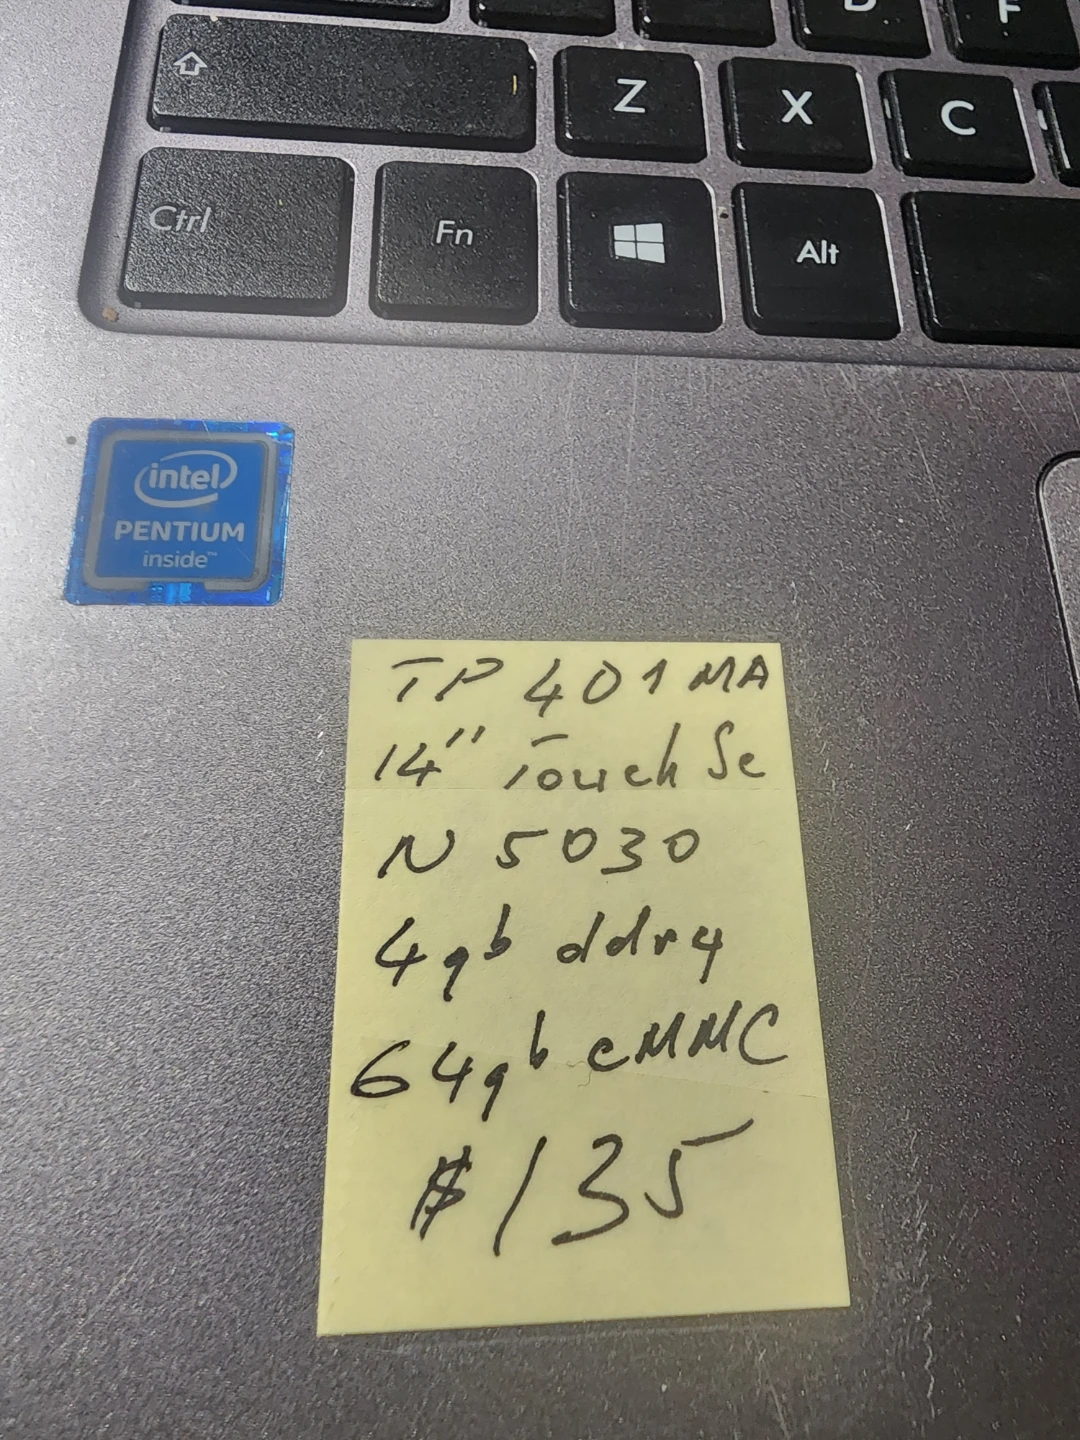 D F
Z X C
Ctrl Fn Alt
intel
PENTIUM
inside™
TP 401MA
14" Touch Sc
N 5030
4gb ddr4
64gb eMMC
$135